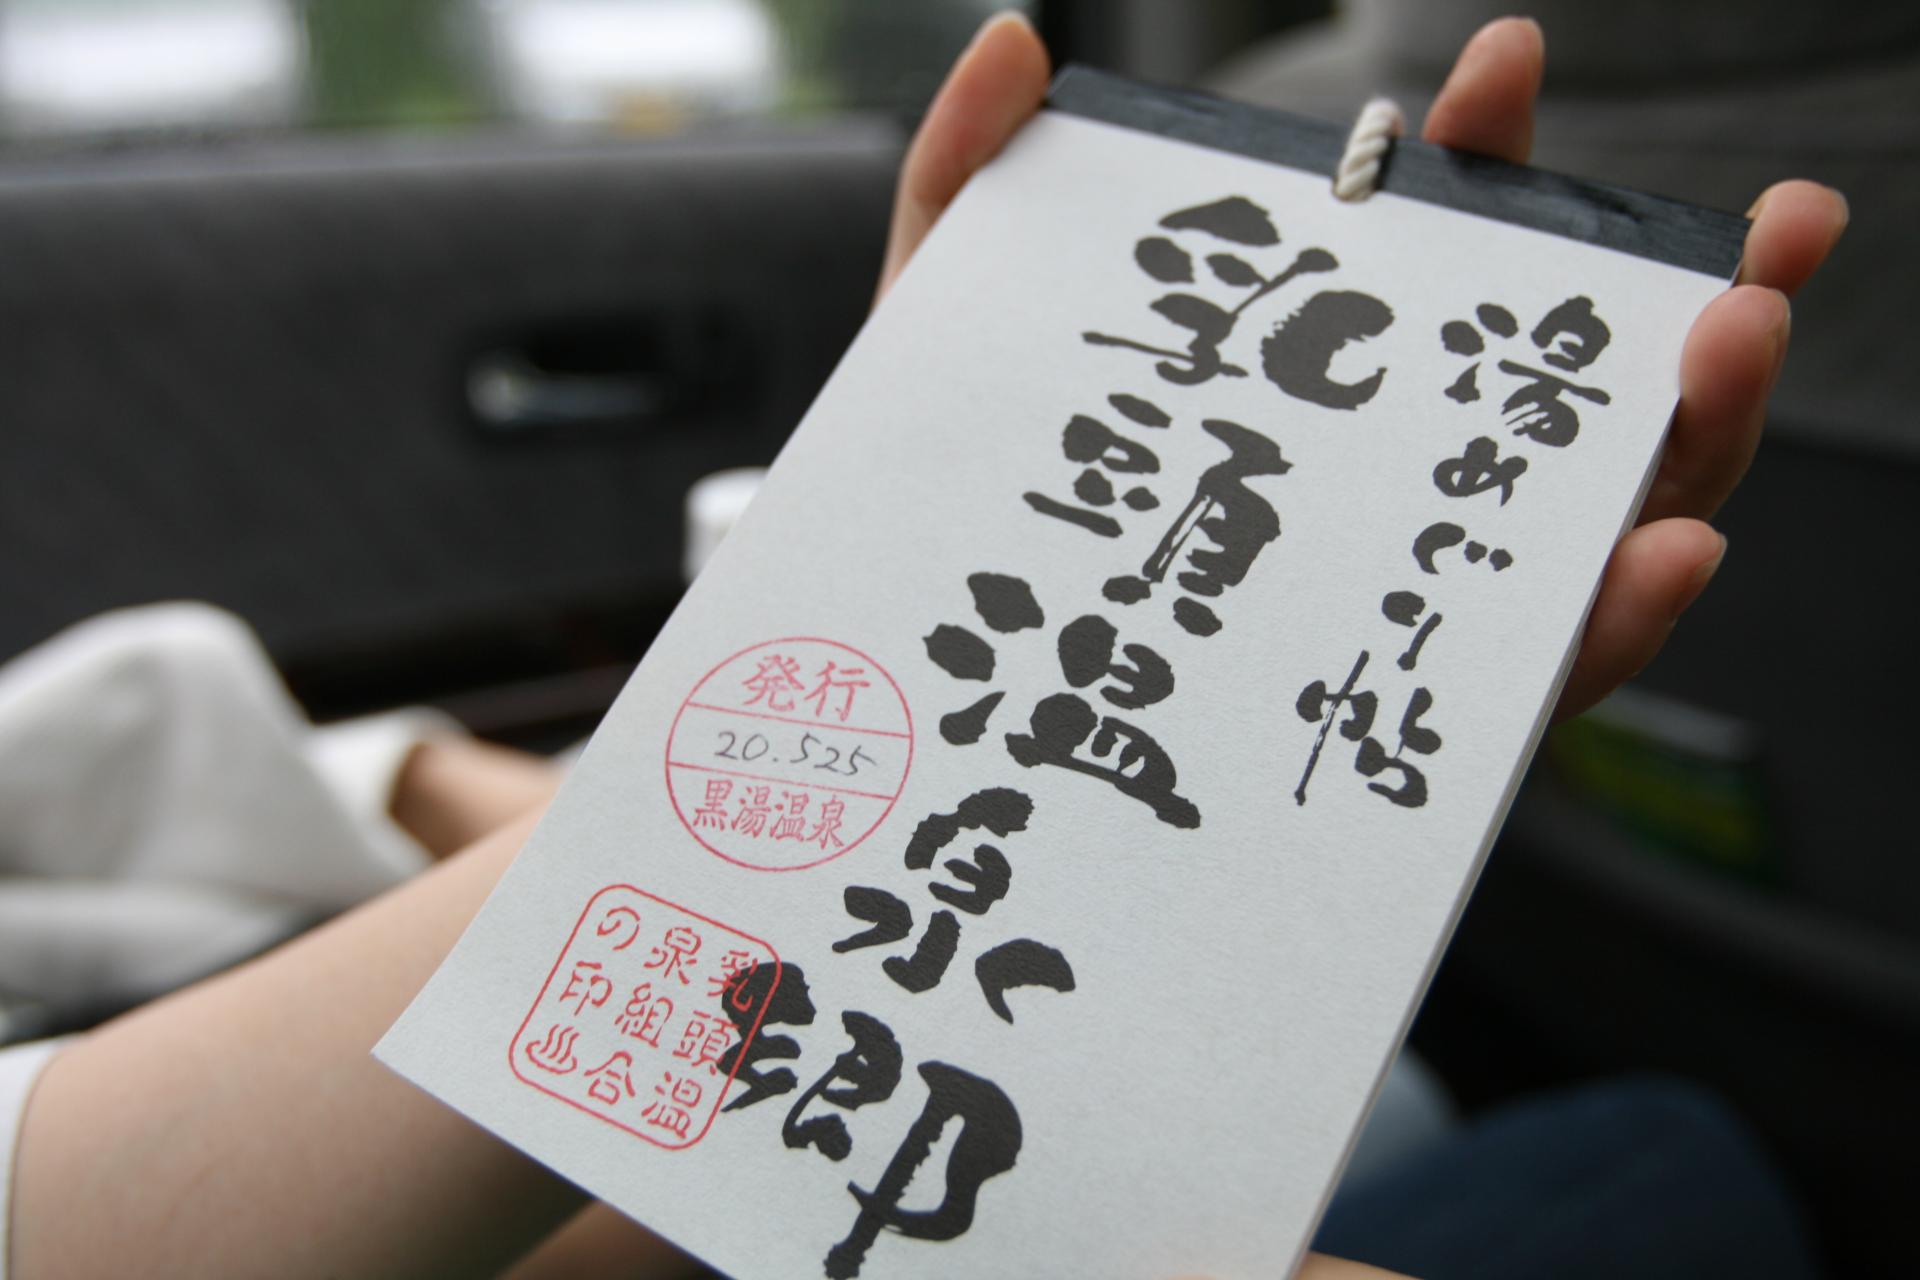 湯めぐり帖
乳頭温泉郷
発行
20.5.25
黒湯温泉
乳頭温
泉組合
の印♨